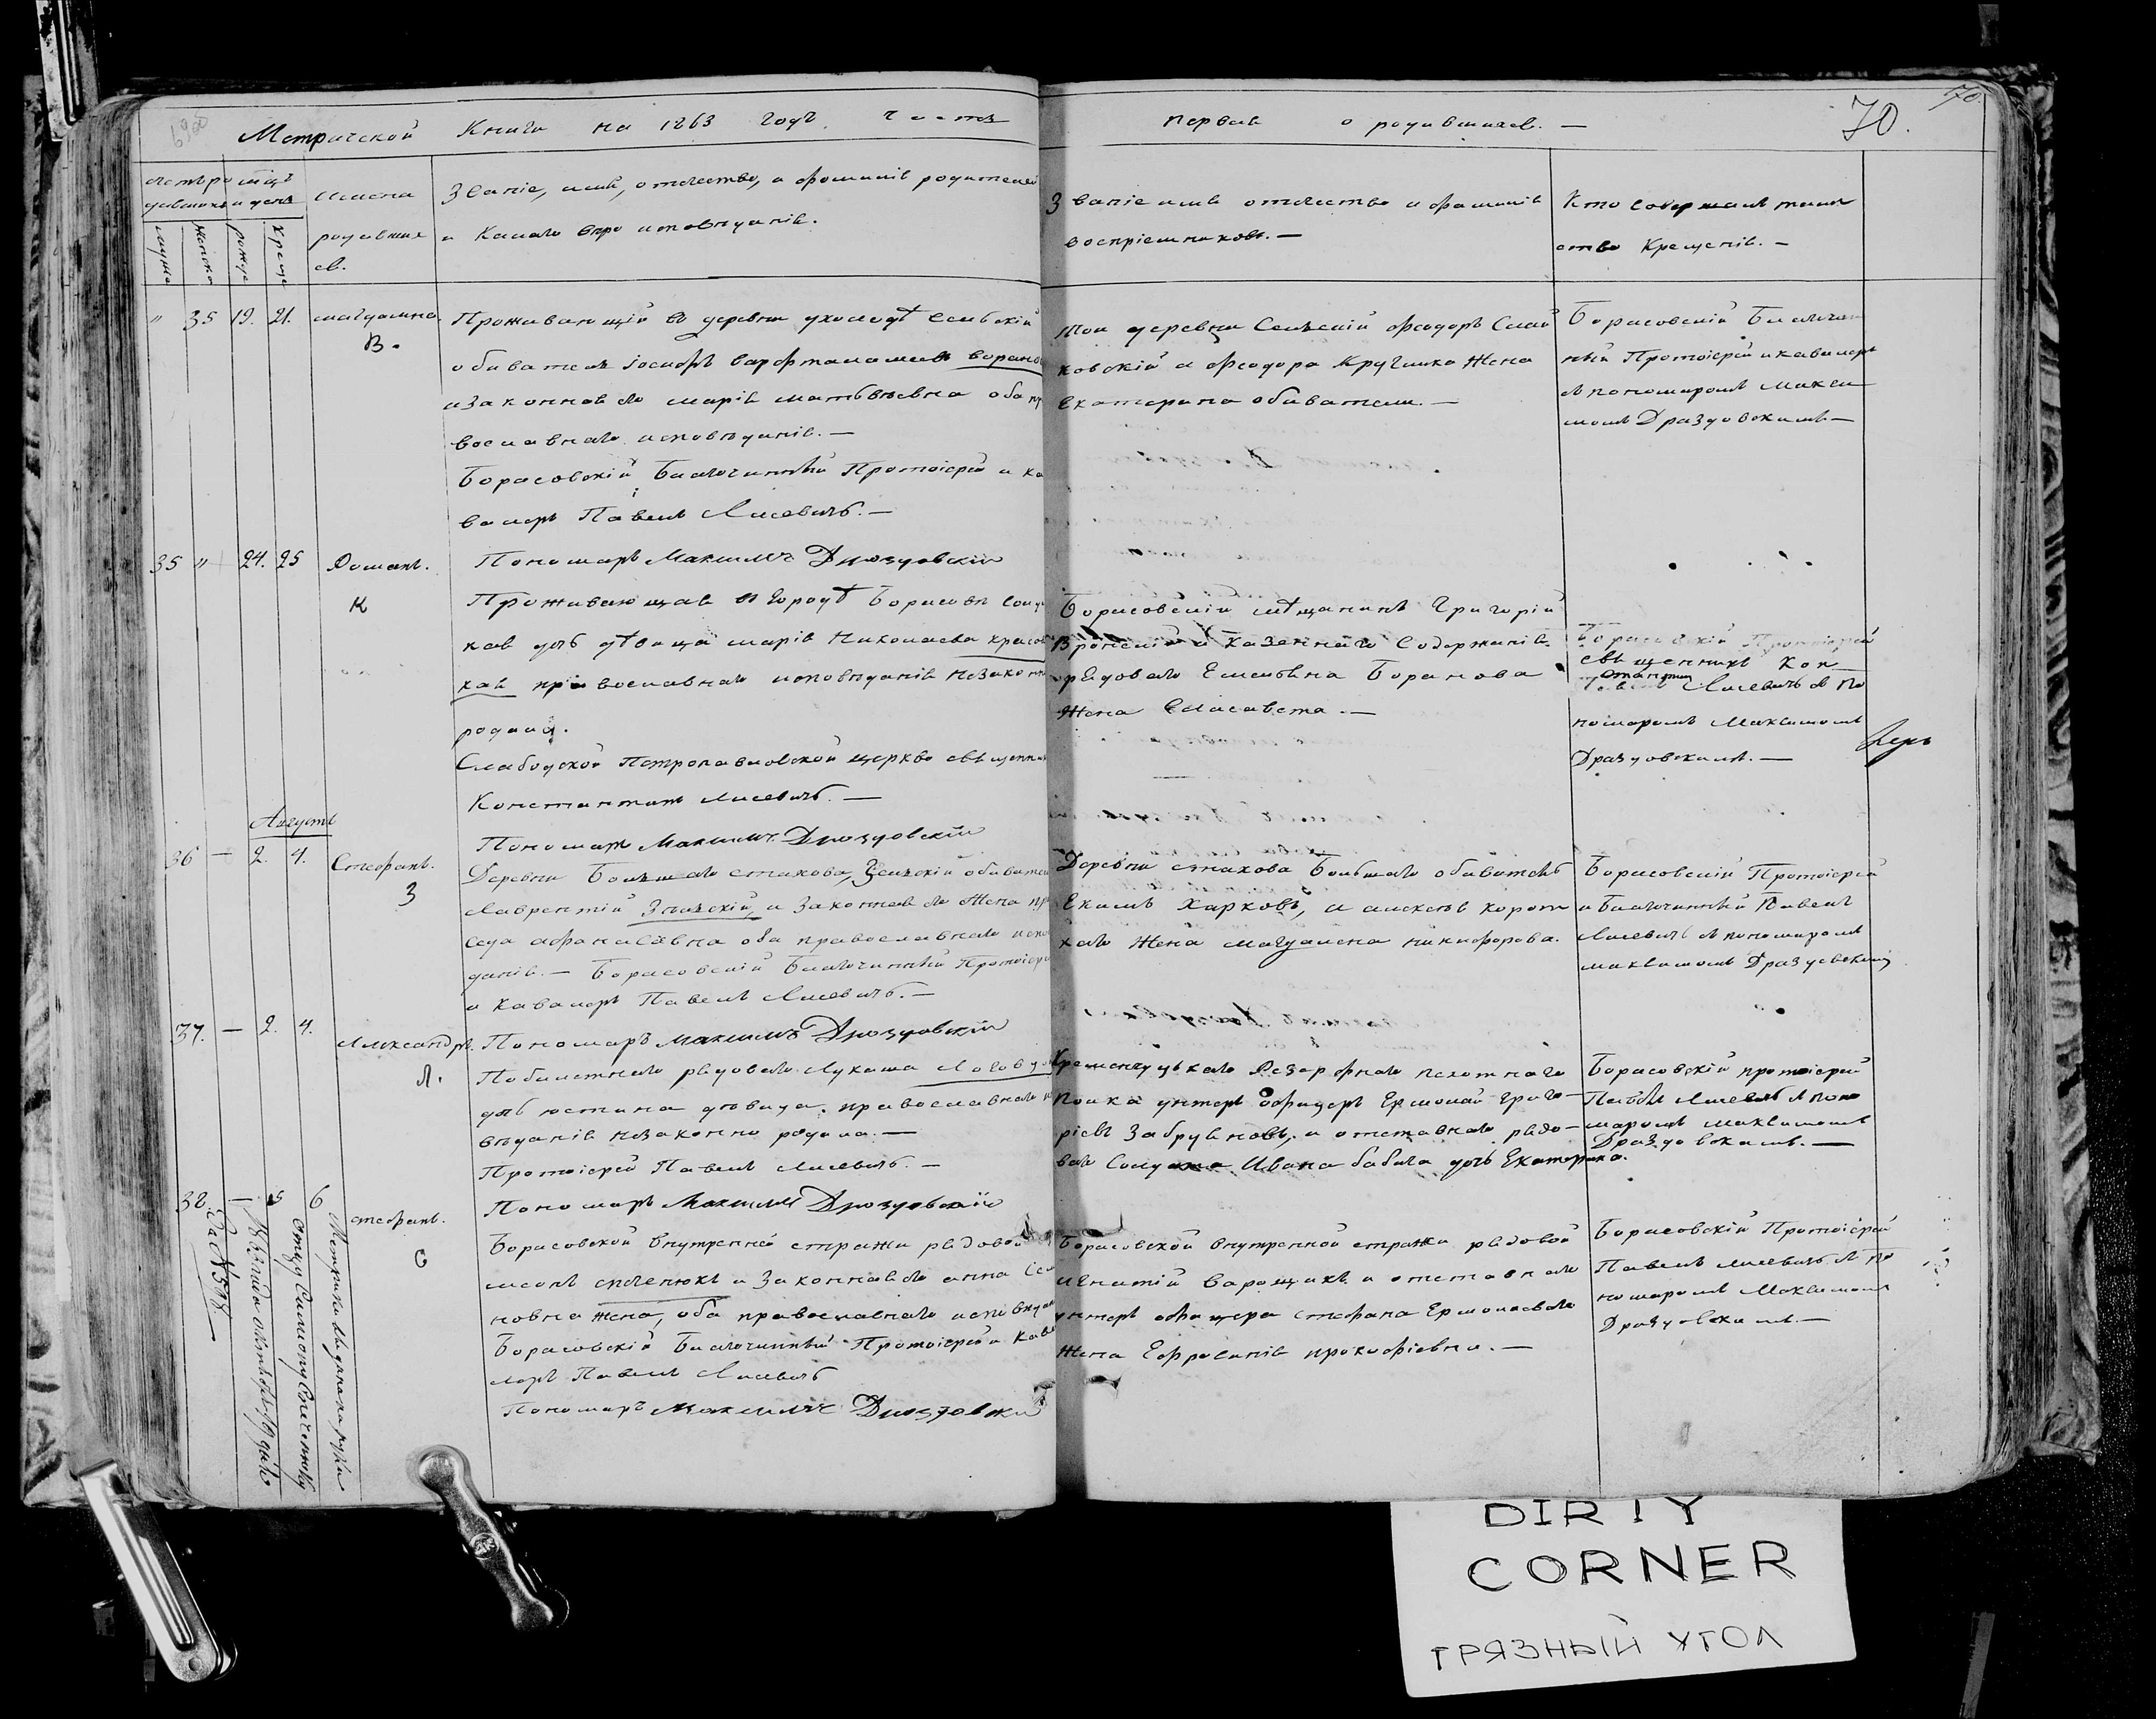 70.
Метрической Книги на 1863 годъ часть
первая о родившихся. —
имена
родивших
ся.
Званіе, имя, отчество, и фамилія родителей
и какого вѣроисповѣданія.
Званіе имя отчество и фамилія
воспріемниковъ. —
Кто совершалъ таин
ство Крещенія. —
" 35 19. 21. магдалина.
В.
Проживающій въ деревни ухолодѣ сельскій
обиватель іосифъ варфталамеевъ воран
изаконная его марія матвѣевна оба пр
вославнаго исповѣданія. —
Борисовскій Благочинный Протоіерей и ка
валеръ Павелъ Лисевичъ. —
Пономаръ Максимъ Дроздовскій
Той деревни Сельскій феодоръ
ковскій и феодора Кручинка Жена
екатерина обиватели. —
Борисовскій Благочин
ный Протоіерей и кавалеръ
съ пономаромъ Макси
момъ Драздовскимъ —
35 " 24. 25 Романъ.
К
Проживающая въ городѣ Борисовѣ солд
кая дочь дѣвица марія Николаева красов
кая православнаго исповѣданія незаконно
родила.
Слабодской Петропавловской церкви священник
Константинъ Лисевичъ. —
Пономаръ Максимъ Дроздовскій
Борисовскій мѣщанинъ Григорій
Вронскій и Казеннаго Содержанія
рядоваго Емельяна Боранова
Жена Елисавета. —
священникъ Кон
стантин
Лисевичъ съ По
номаромъ Максимомъ
Драздовскимъ. —
Августъ
36 — 2. 4. Стефанъ.
З
Деревни Большаго стахова, Сельскій обиватель
Лаврентій Зельскій, и Законная его Жена пр
седа афанасіевна оба православнаго испо
данія. — Борисовскій Благочинный Протоіере
и Кавалеръ Павелъ Лисевичъ. —
Пономаръ Максимъ Дроздовскій
Деревни стахова Большаго обиватель
Екимъ Харковъ, и алексѣя корот
каго Жена магдалена никифорова.
Борисовскій Протоіерей
и Благочинный Павелъ
Лисевичъ съ пономаромъ
максимомъ Драздовскимъ
37. — 2. 4. Александръ.
Л.
Побилетнаго рядоваго Лукаша
дочь юстина дѣвица. православнаго
вѣданія незаконно родила. —
Протоіерей Павелъ Лисевичъ. —
Пономаръ Максимъ Дроздовскій
Кременчуцькаго Резерфнаго пехотнаго
Полка унтеръ офицеръ Ермолай Григо-
ріевъ Забруяновъ, и отставнаго рядо-
ваго Солдата Ивана бабича дочь Екатерина.
Борисовскій протоіерей
Павелъ Лисевичъ съ Поно
маромъ максимомъ
Драздовскимъ. —
38. — 5 6 стефанъ.
С
Борисовской внутренней стражи рядовой
меонъ спеченюкъ и Законная его анна Сем
новна жена, оба православнаго исповѣдан
Борисовскій Благочинный Протоіерей и Кава
леръ Павелъ Лисевичъ
Пономаръ Максимъ Дроздовски
Борисовской внутренной стражи рядовой
игнатій Варощукъ и отставнаго
унтеръ офицера стефана Ермолаеваго
Жена Ефросинія прокофіевна. —
Борисовскій Протоіерей
Павелъ Лисевичъ съ По
номаромъ Максимомъ
Драздовскимъ. —
DIRTY
CORNER
ГРЯЗНЫЙ УГОЛ